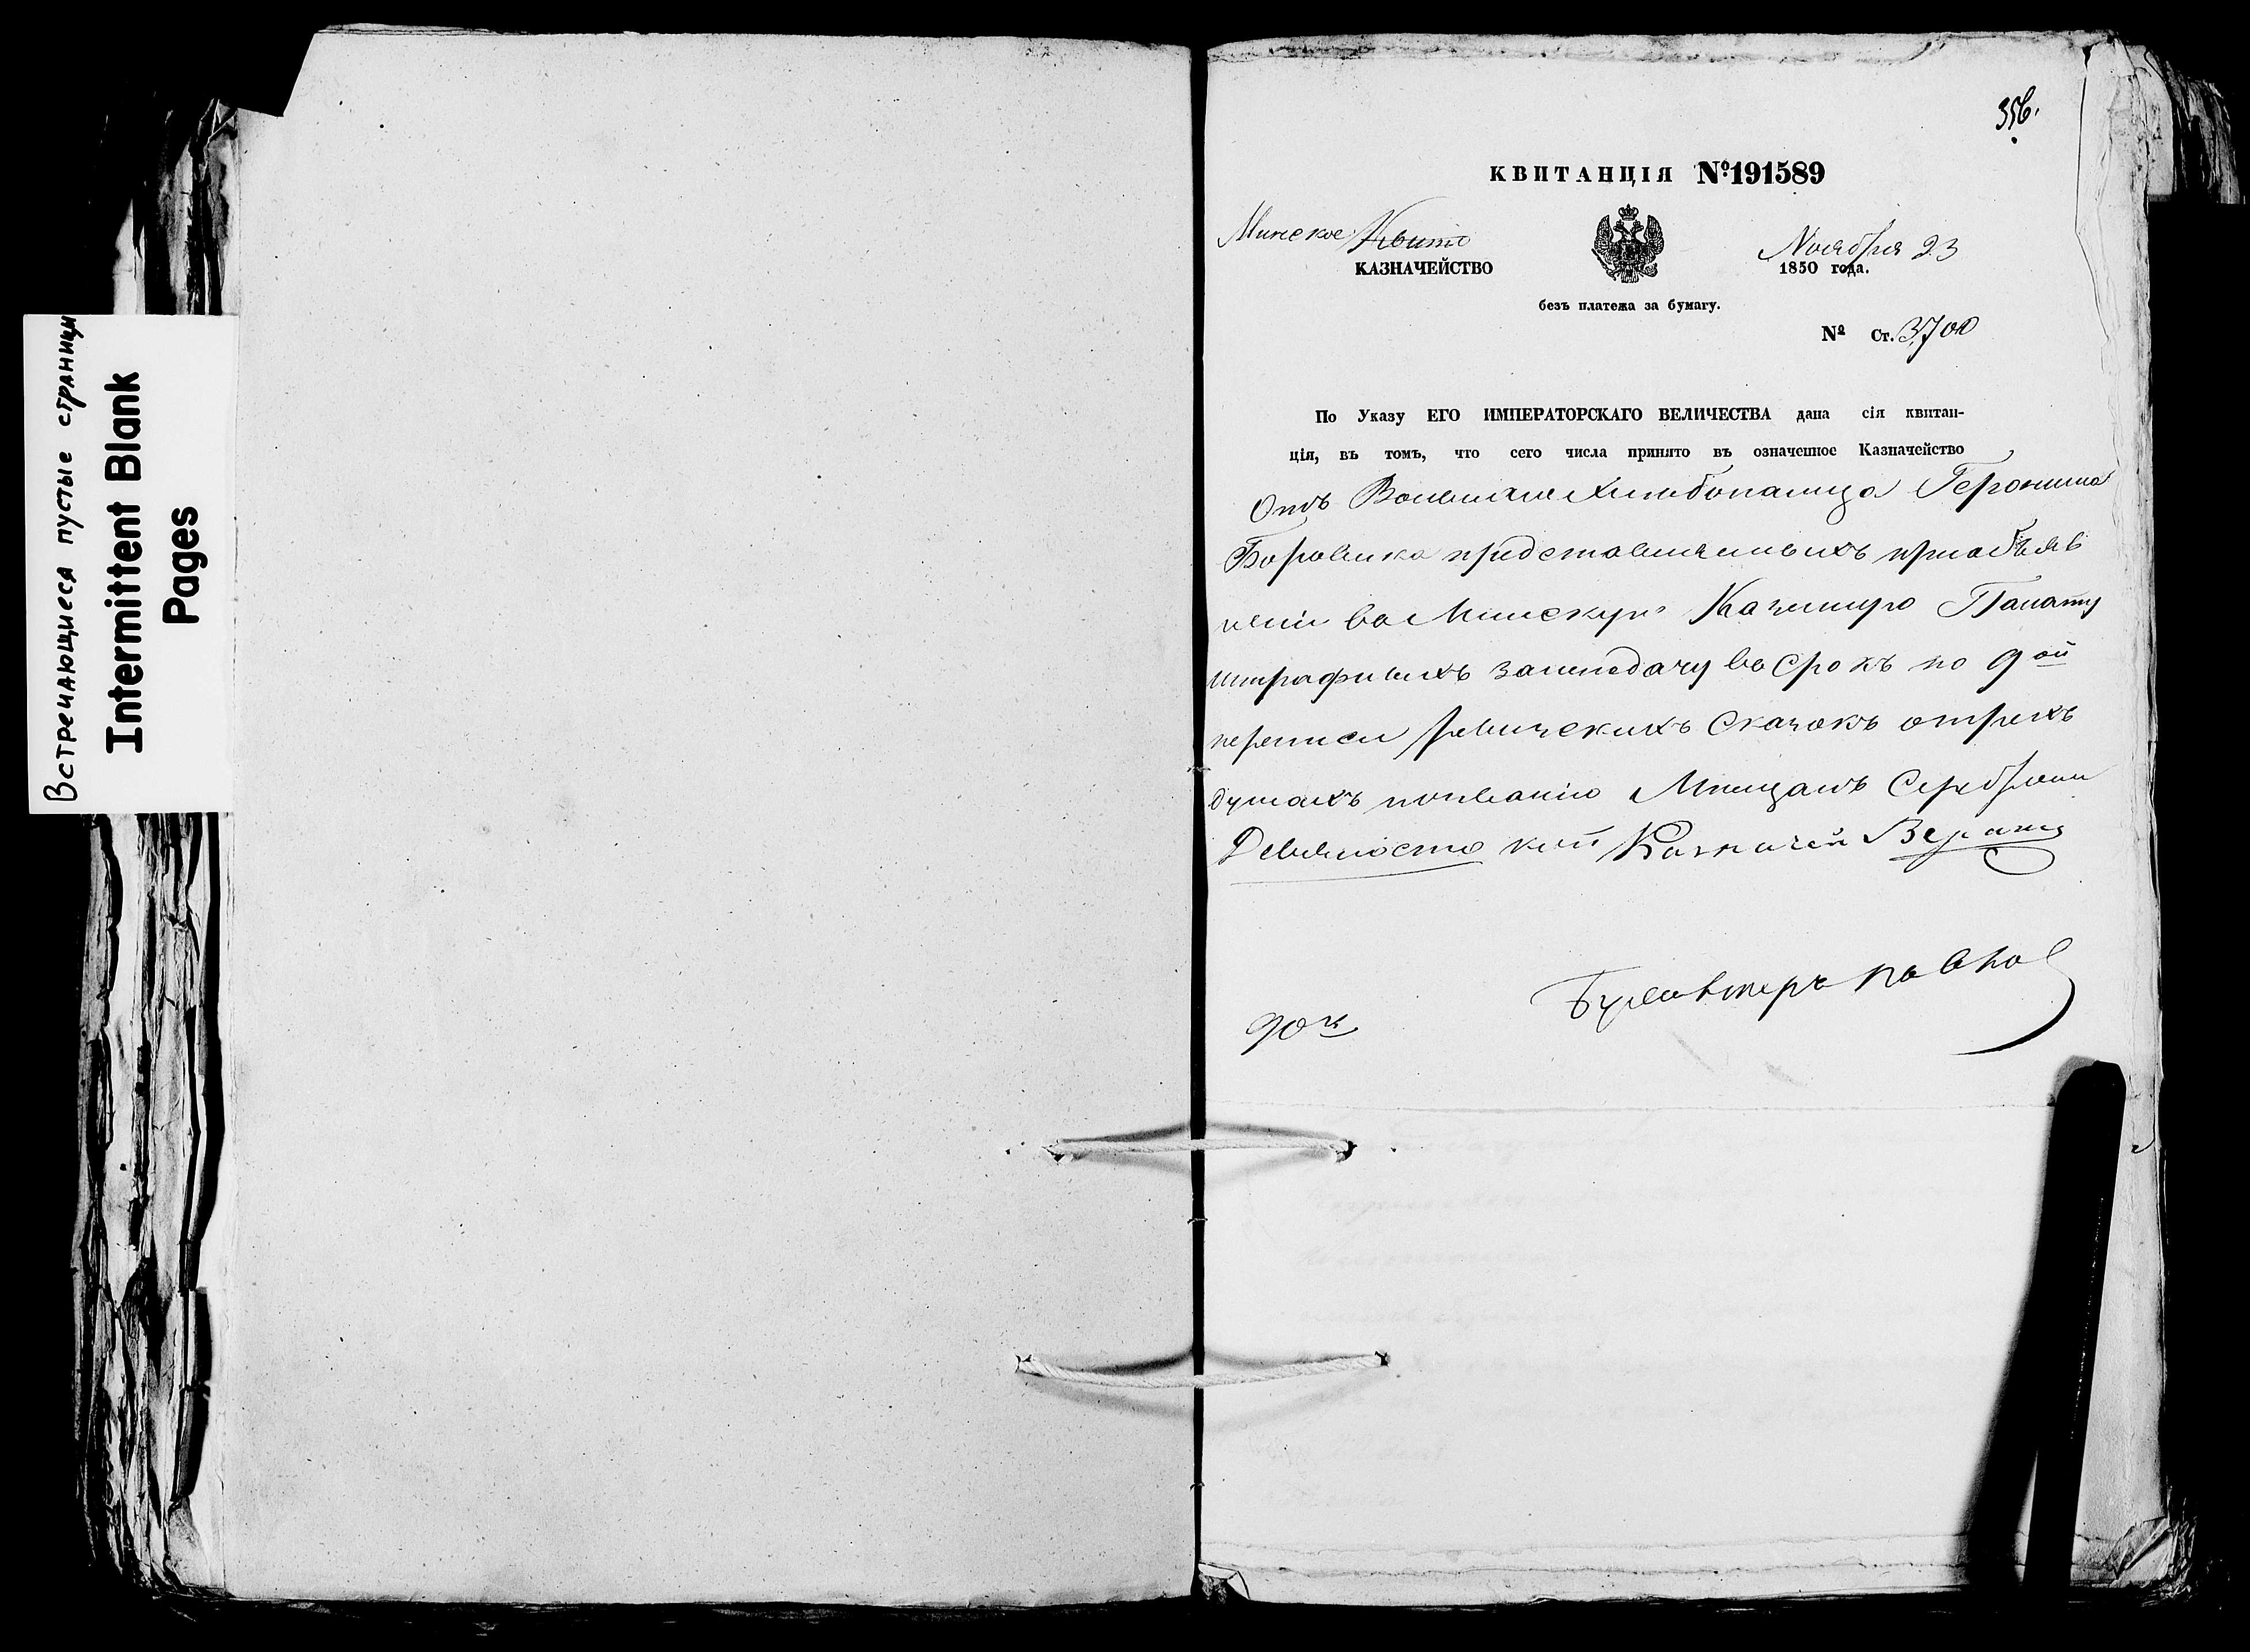 Встречающиеся пустые страницы
Intermittent Blank
Pages
356.
КВИТАНЦІЯ №191589
Минское
КАЗНАЧЕЙСТВО
Ноября 23
1850 года.
безъ платежа за бумагу.
№ Ст. 3700
По Указу ЕГО ИМПЕРАТОРСКАГО ВЕЛИЧЕСТВА дана сія квитан-
ція, въ томъ, что сего числа принято въ означенное Казначейство
Отъ Вольнаго Хлебопашца Геронима
Боровика представленныхъ приобъяв
леніи во Минскую Казенную Палату
штрафныхъ занеподачу во срокъ по 9ой
переписи Ревизскихъ Сказокъ отрехъ
душахъ позванію Мещанъ Серебромъ
Девяносто коп Казначей
Бухгалтеръ
90 к